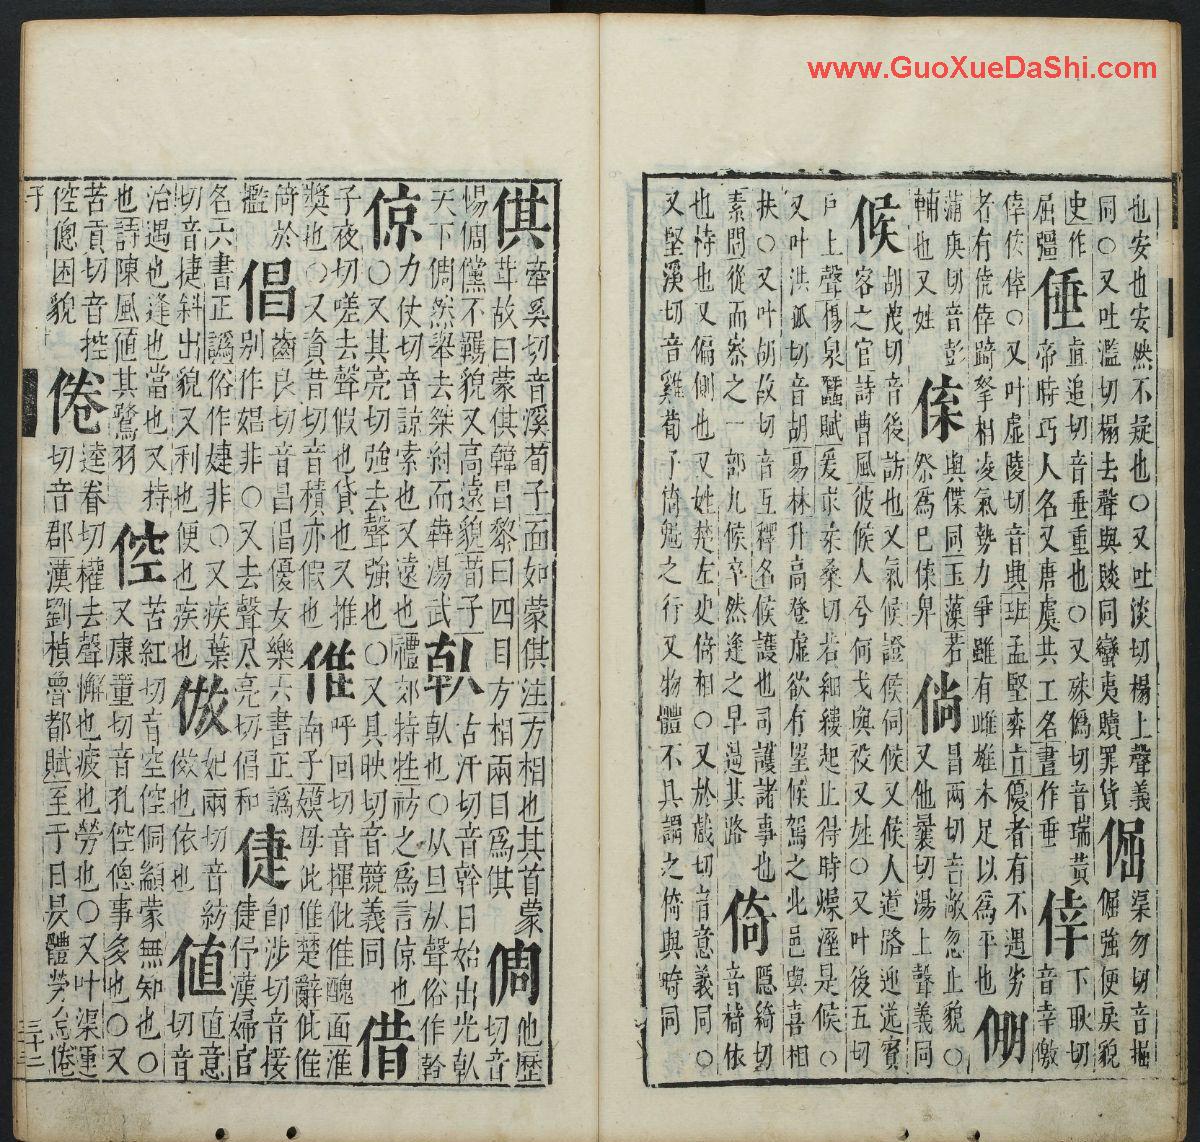 www.GuoXueDaShi.com
也安也安然不疑也〇又吐淡切榻上聲義
同〇又吐濫切榻去聲與賧同蠻夷贖罪貨
倔
渠勿切音掘
倔強便戾貌
史作
屈彊
倕
直追切音垂重也〇又殊僞切音瑞黃
帝時巧人名又唐虞共工名書作垂
倖
下耿切
音幸儌
倖佽倖〇又叶虛陵切音興班孟堅弈旨優者有不遇劣
者有僥倖踦拏相凌氣勢力爭雖有雌雄未足以爲平也
倗
蒲庚切音彭
輔也又姓
倈
與倸同玉藻若
祭爲已倈卑
倘
昌兩切音敞忽止貌〇
又他曩切湯上聲義同
候
胡茂切音後訪也又氣候證候伺候又候人道路迎送賓
客之官詩曹風彼候人兮何戈與祋又姓〇又叶後五切
戶上聲楊泉蠶賦爰求柔桑切若細縷起止得時燥溼是候〇
又叶洪孤切音胡易林升高登虛欲有望候駕之北邑與喜相
扶〇又叶胡故切音互釋名候護也司護諸事也
素問從而察之一部九候卒然逢之早遏其路
倚
隱綺切
音椅依
也恃也又偏側也又姓楚左史倚相〇又於戲切音意義同〇
又堅溪切音雞荀子倚魁之行又物體不具謂之倚與畸同
倛
牽奚切音溪荀子面如蒙倛注方相也其首蒙
茸故曰蒙倛韓昌黎曰四目方相兩目爲倛
倜
他歷
切音
惕倜儻不羈貌又高遠貌荀子
天下倜然舉去桀紂而犇湯武
倝
古汗切音幹日始出光倝
倝也〇从旦㫃聲俗作幹
倞
力仗切音諒索也又遠也禮郊特牲祊之爲言倞也
〇又其亮切強去聲強也〇又具映切音競義同
借
子夜切嗟去聲假也貸也又推
獎也〇又資昔切音積亦假也
倠
呼回切音揮仳倠醜面淮
南子嫫母仳倠楚辭仳倠
倚於
襤
倡
齒良切音昌倡優女樂六書正譌
別作娼非〇又去聲尺亮切倡和
倢
卽涉切音接
倢伃漢婦官
名六書正譌俗作婕非〇又疾葉
切音捷斜出貌又利也便也疾也
倣
妃兩切音紡
倣也依也
値
直意
切音
治遇也逢也當也又持
也詩陳風値其鷺羽
倥
苦紅切音空倥侗顓蒙無知也〇
又康董切音孔倥傯事多也〇又
苦貢切音控
倥傯困貌
倦
逵眷切權去聲懈也疲也勞也〇又叶渠運
切音郡漢劉楨魯都賦至于日昃體勞怠倦